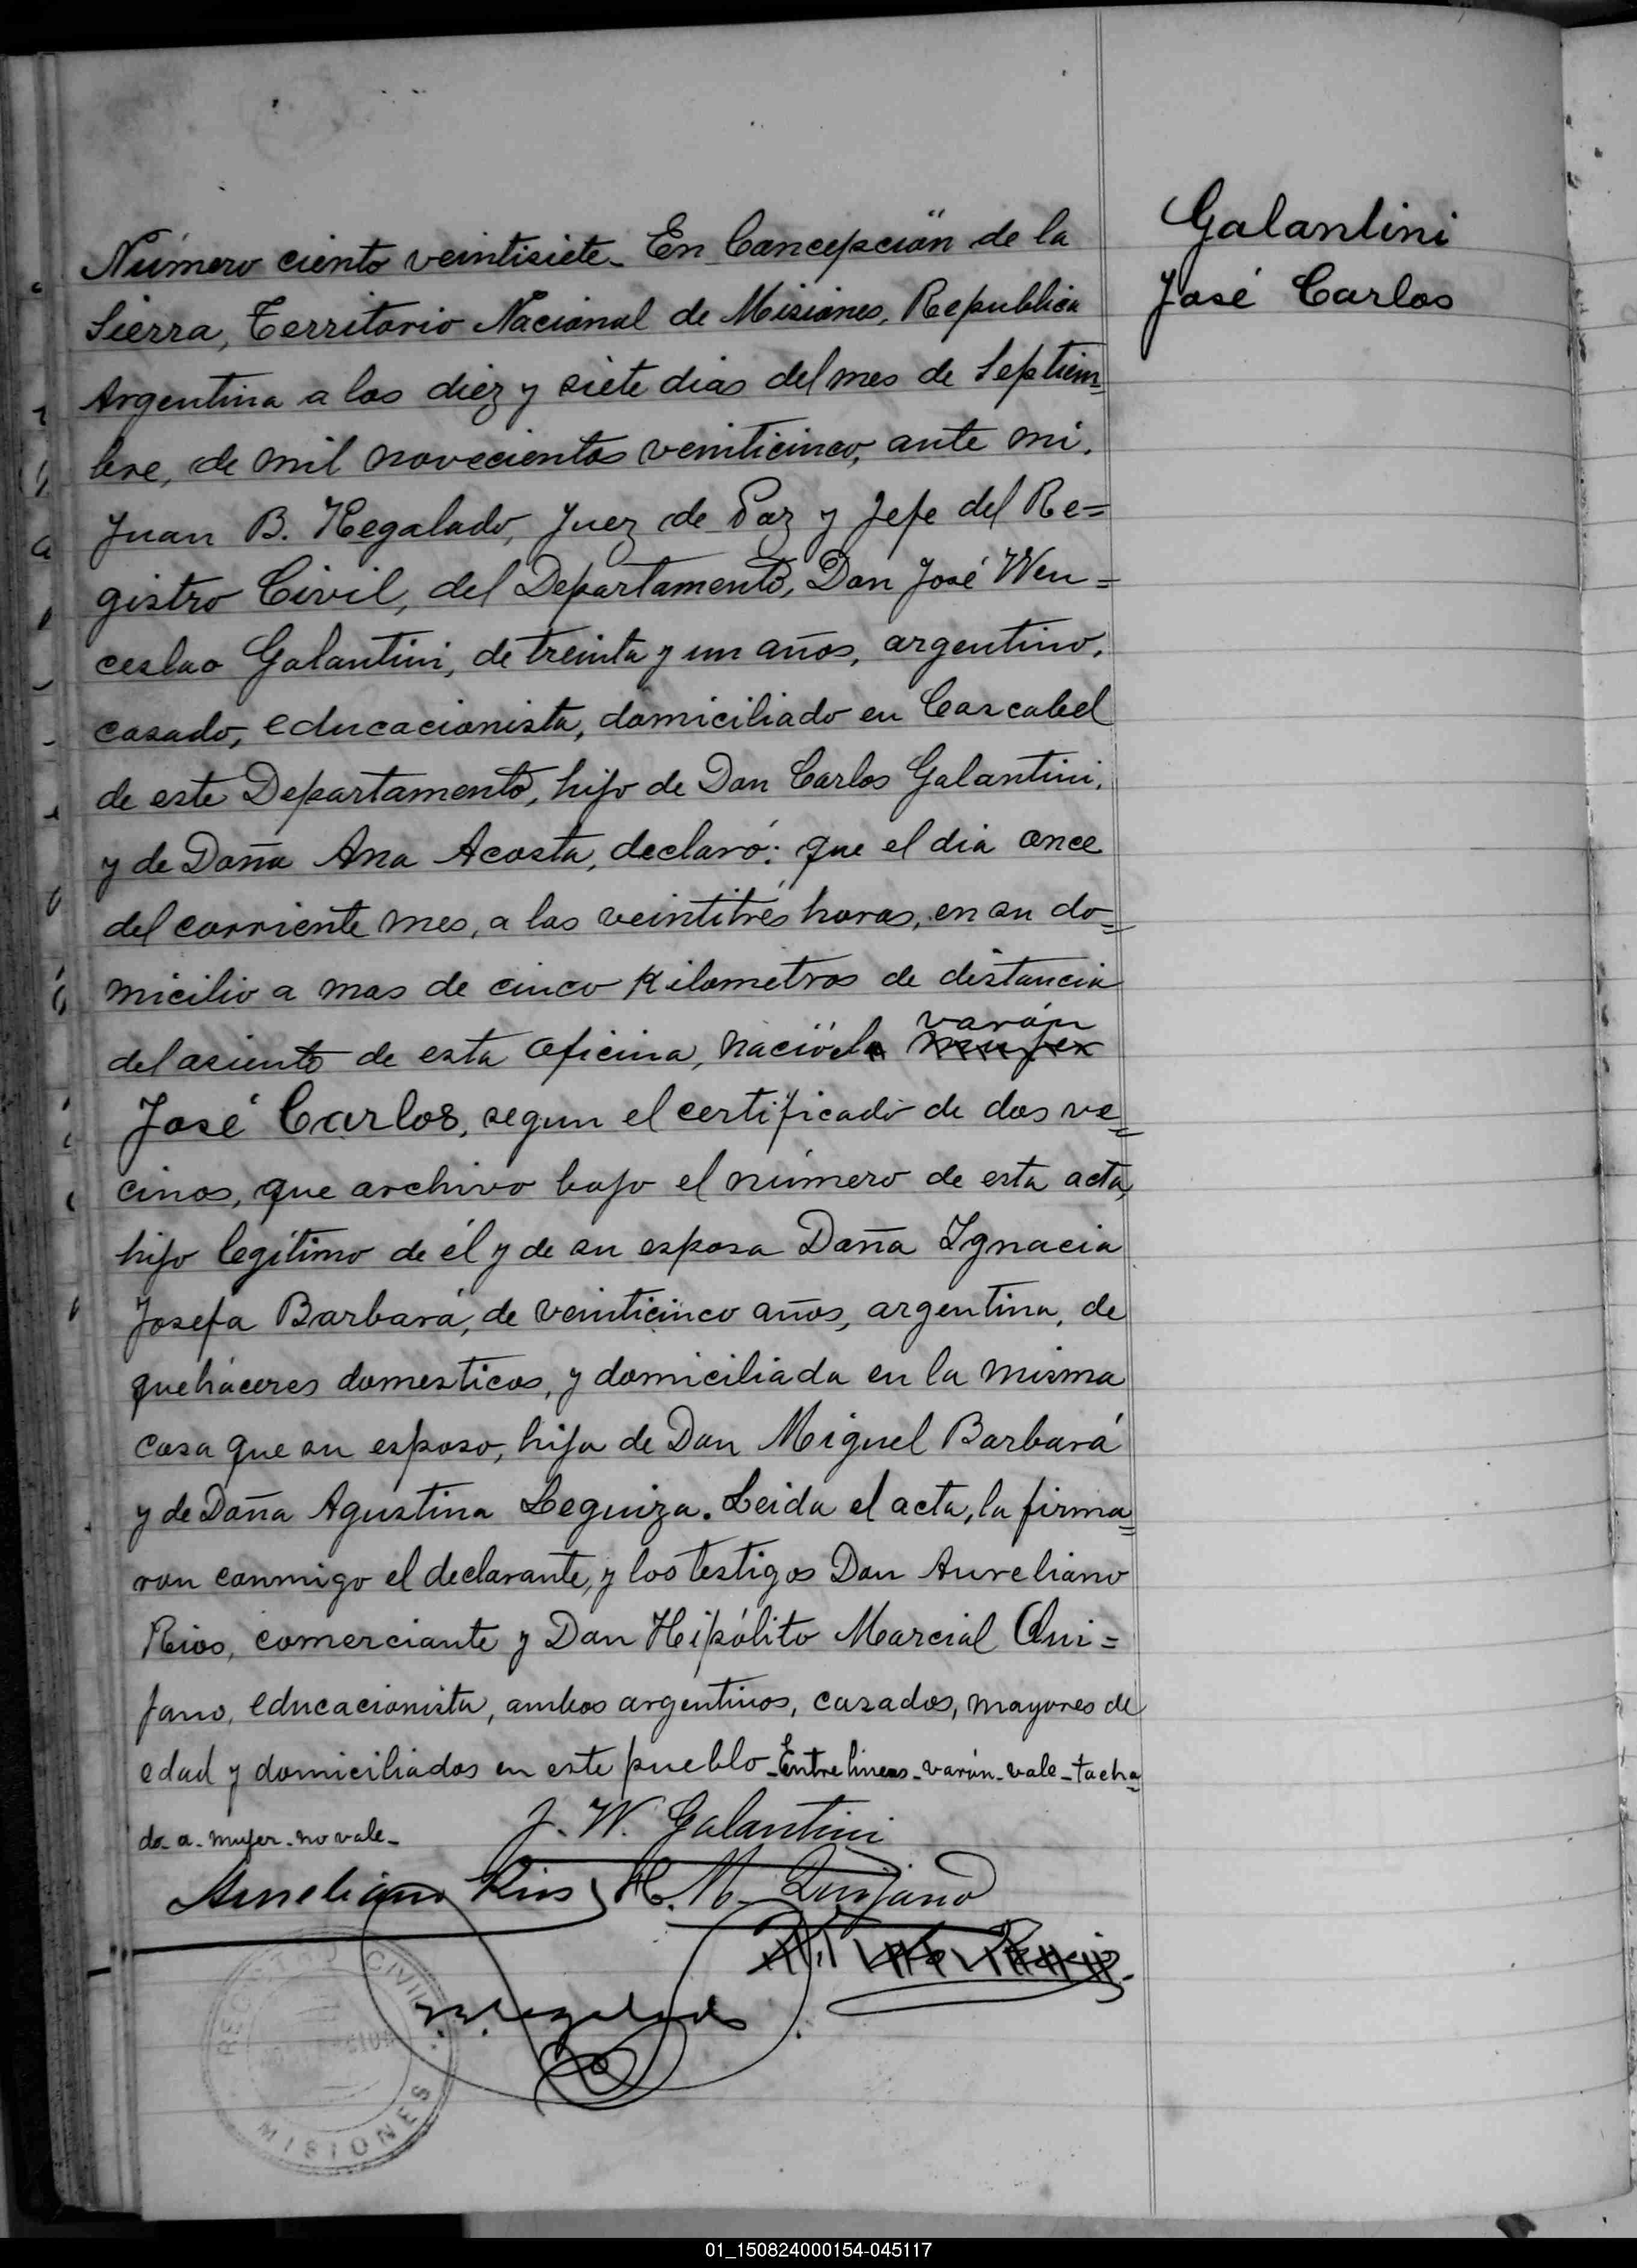 Galantini
José Carlos
Número ciento veintisiete_ En Concepción de la
Sierra, Territorio Nacional de Misiones, Republica
Argentina a los diez y siete dias del mes de Septiem=
bre, de mil novecientos veinticinco, ante mi,
Juan B. Regalado, Juez de Paz y Jefe del Re=
gistro Civil, del Departamento, Don José Wen=
ceslao Galantini, de treinta y un años, argentino,
casado, educacionista, domiciliado en Cascabel
de este Departamento, hijo de Don Carlos Galantini,
y de Doña Ana Acosta, declaró: que el dia once
del corriente mes, a las veintitrés horas, en su do=
micilio a mas de cinco kilometros de distancia
varón
del asiento de esta oficina, nació el a mujer
José Carlos, segun el certificado de dos ve=
cinos, que archivo bajo el número de esta acta,
hijo legítimo de él y de su esposa Doña Ignacia
Josefa Barbará, de veinticinco años, argentina, de
quehaceres domesticos, y domiciliada en la misma
casa que su esposo, hija de Don Miguel Barbará
y de Doña Agustina Leguiza. Leida el acta, la firma=
ron conmigo el declarante, y los testigos Don Aureliano
Rios, comerciante y Don Hipólito Marcial Qui=
jano, educacionista, ambos argentinos, casados, mayores de
edad y domiciliados en este pueblo_Entre lineas_varón_vale_tacha=
do_a_mujer_no vale_
J. W. Galantini
Aureliano Rios H. M. Quijano
Regalado
REGISTRO CIVIL
MISIONES
01_150824000154-045117